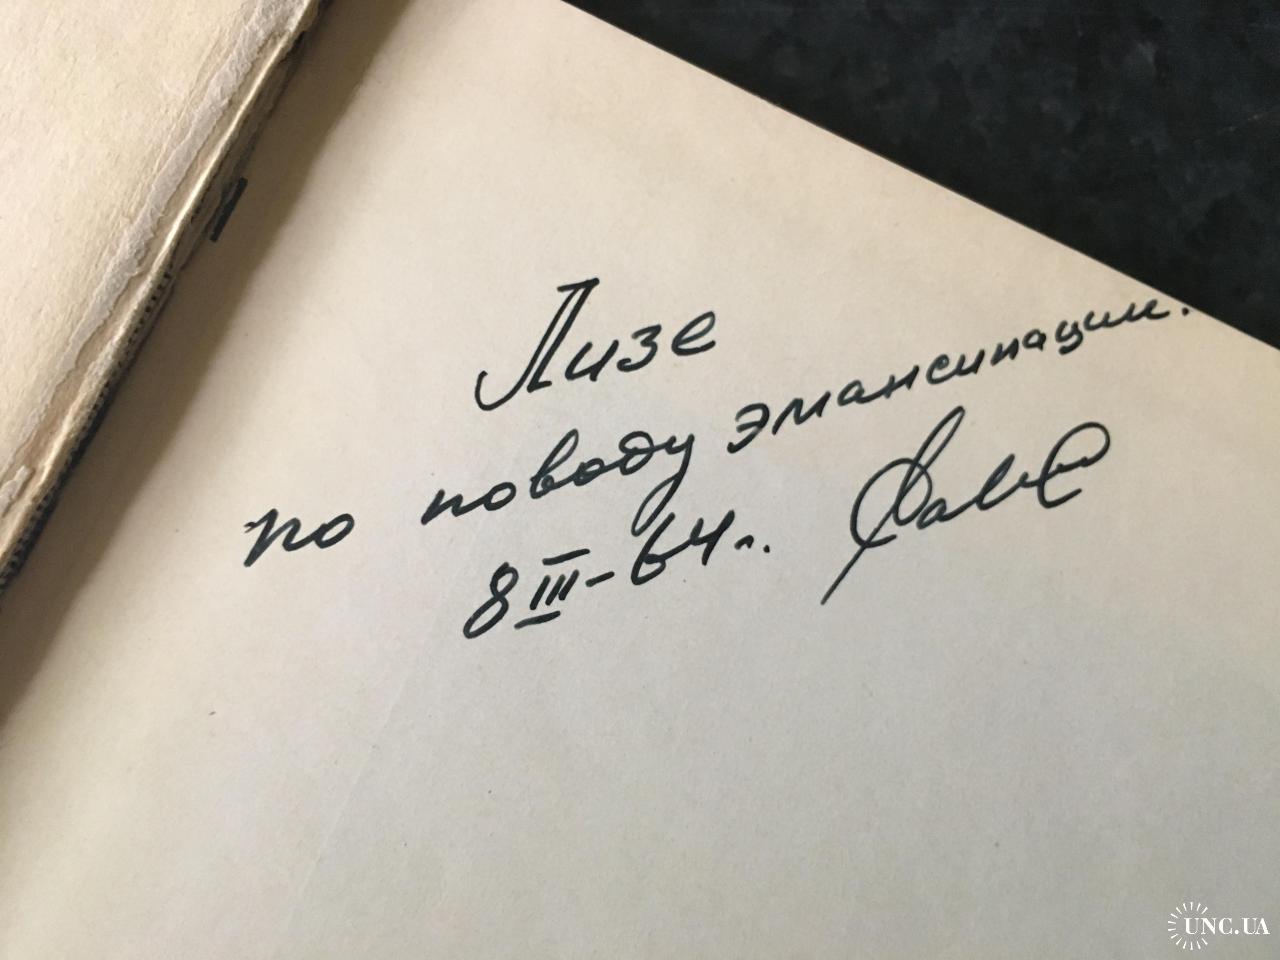 Лизе
по поводу эмансипации.
8 III - 64 г.
UNC.UA